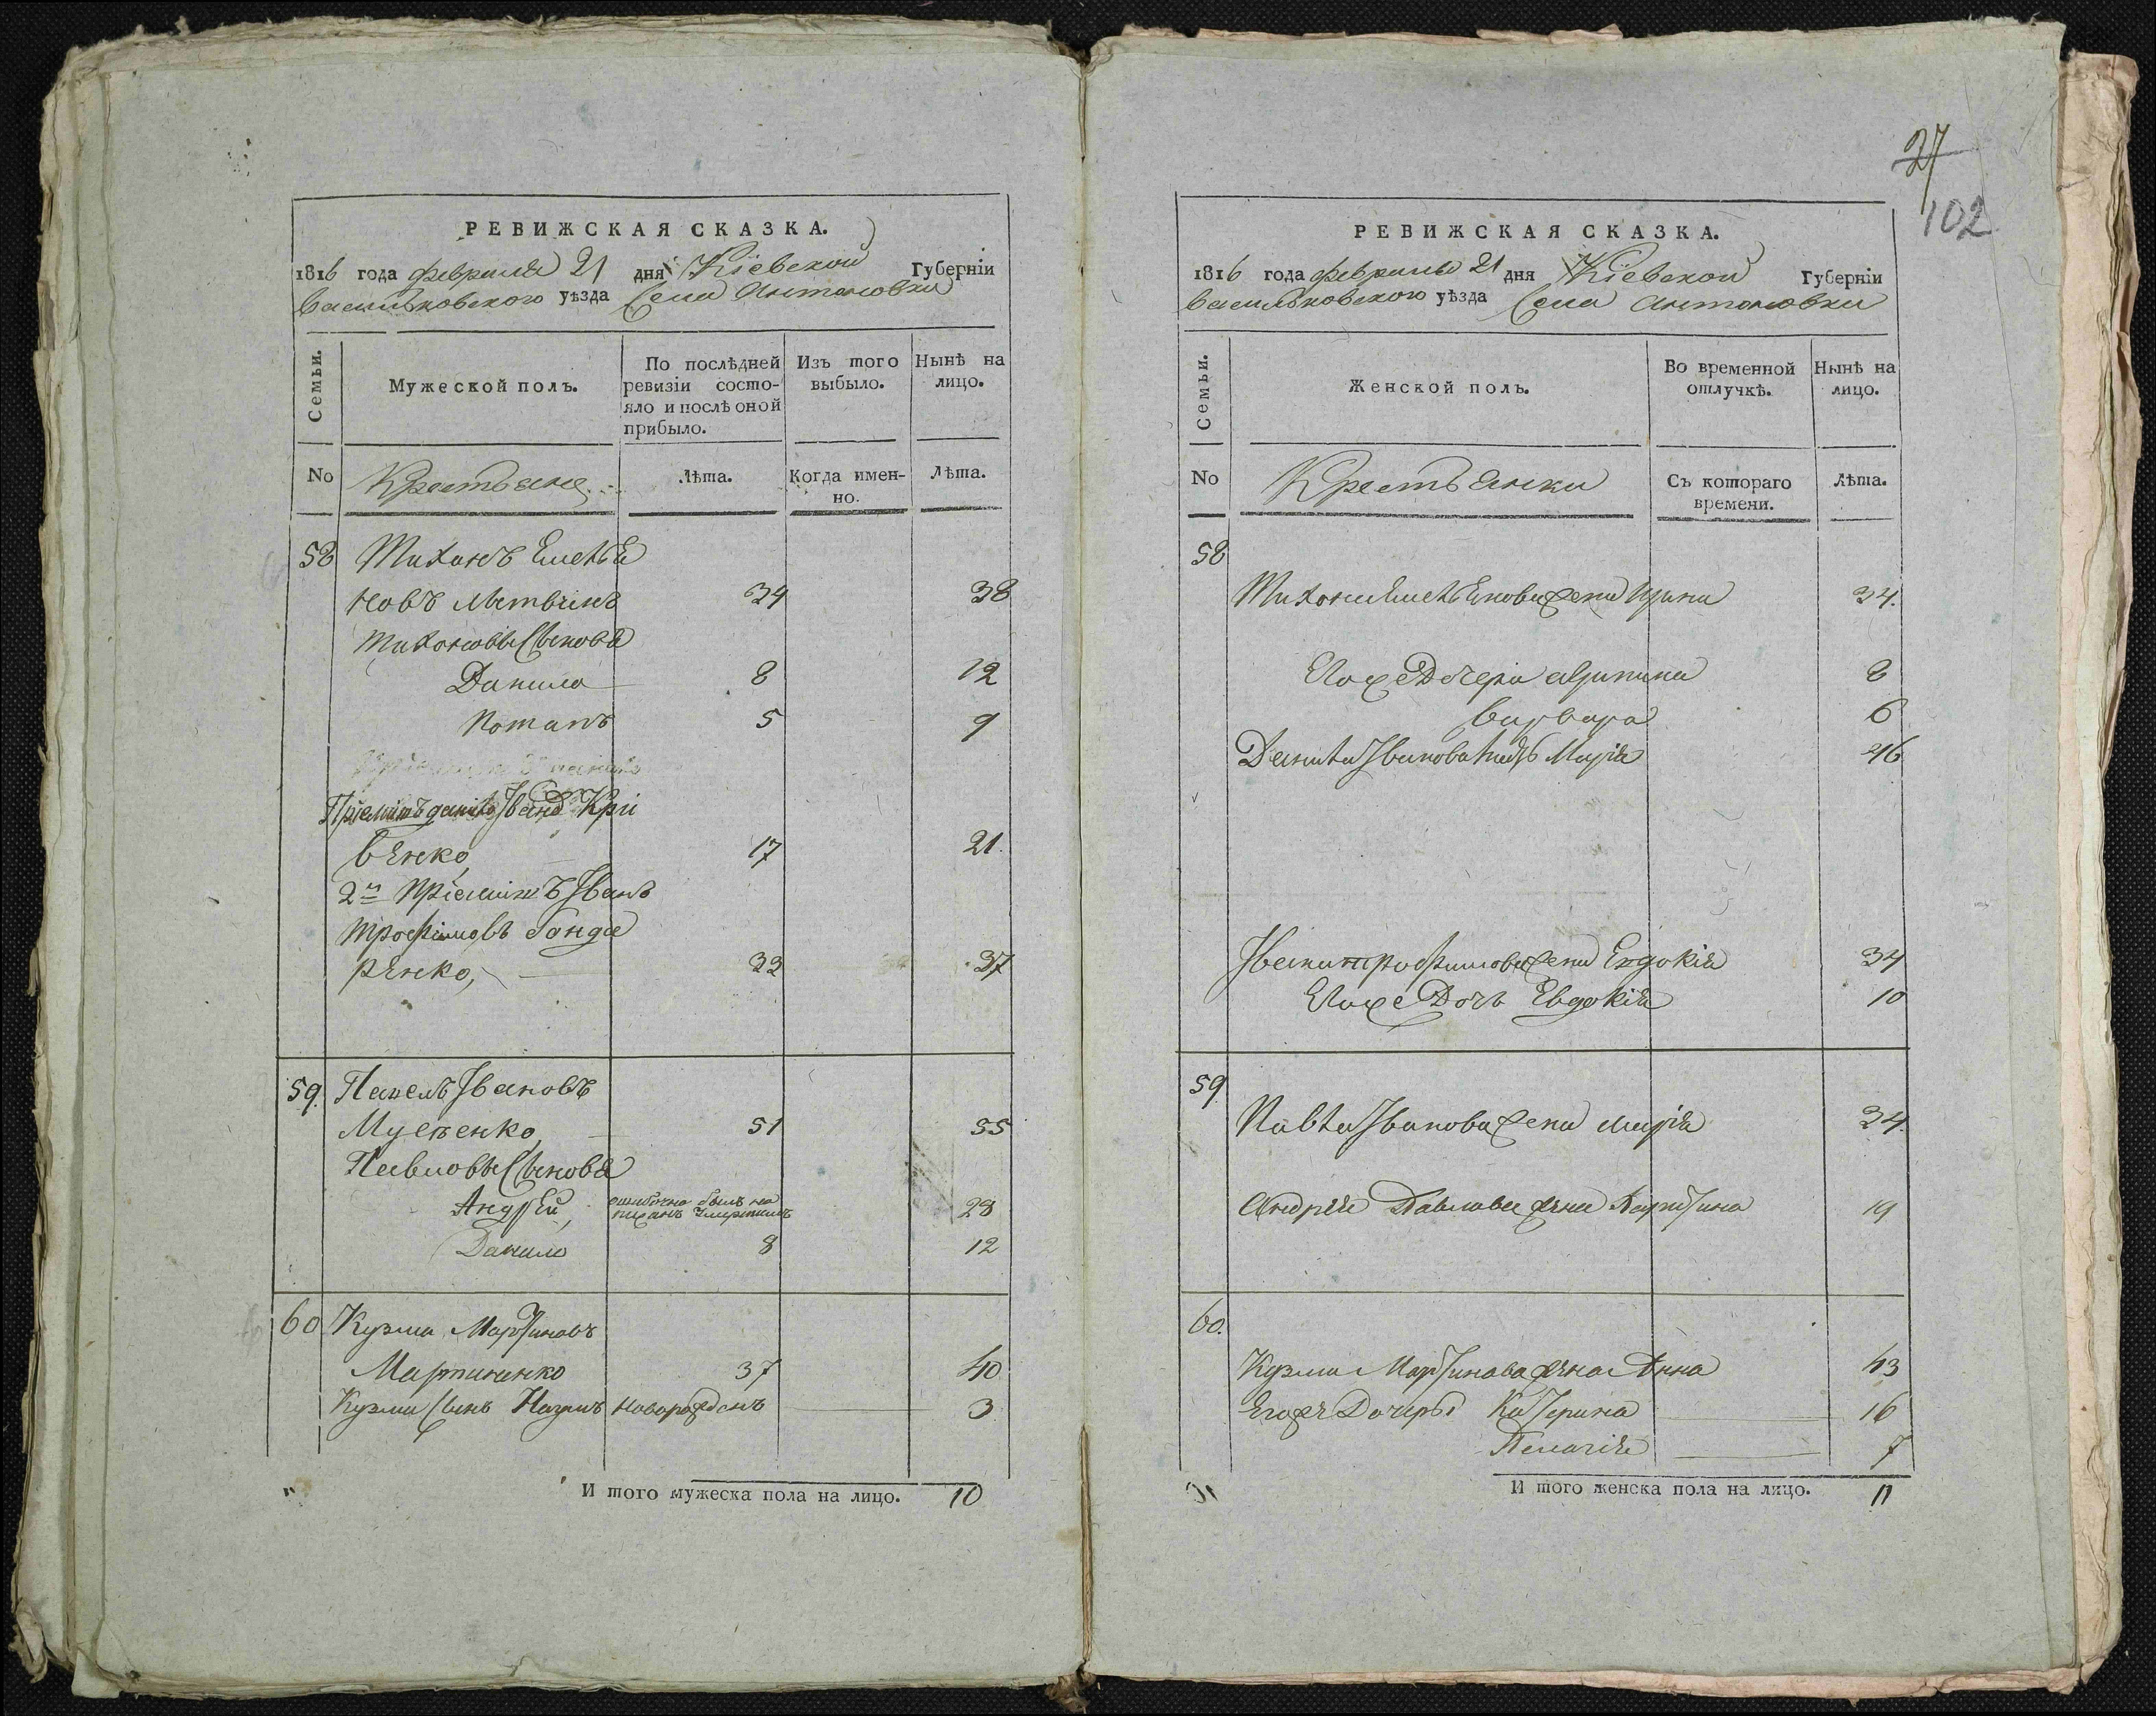 РЕВИЖСКАЯ СКАЗКА.
1816 года февраля 21 дня Кіевской Губерніи
Васильковского уѣзда Села Антоновки
Семьи.
Мужеской полъ.
По послѣдней ревизіи состояло и послѣ оной прибыло.
Изъ того выбыло.
Нынѣ на лицо.
No Крестьяне
Лѣта.
Когда именно.
Лѣта.
58 Тихонъ Емелья
новъ 34 38
Тихоновы Сыновья
Данило 8 12
Потапъ 5 9
Пріемышъ Иванъ Кри
венко 17 21
2й Пріемышъ Иванъ
Трофимовъ Гонча
ренко, 33 37
59. Павелъ Ивановъ
51 55
Павловы Сыновья
Андрей, ошибочно былъ на
писанъ умершимъ 28
Данило 8 12
60 Кузма Мартиновъ
Мартиненко 37 40
Кузмы Сынъ Наумъ Новорожденъ 3
И того мужеска пола на лицо. 10
27
102
РЕВИЖСКАЯ СКАЗКА.
1816 года февраля 21 дня Кіевской Губерніи
Васильковского уѣзда Села Антоновки
Семьи.
Женской полъ.
Во временной отлучкѣ.
Нынѣ на лицо.
No Крестьянки
Съ котораго времени.
Лѣта.
58
Тихона Емельянова жена Ирина 34.
Его же Дочери Агрипина 8
Варвара 6
Иванова Марія 46
Ивана Трофимова жена Евдокія 34
Его же Дочь Евдокія 10
59
Павла Иванова жена Марія 34.
Андрея Павлова жена 19
60.
Кузмы Мартинова жена Анна 43
Его же Дочеры Катерина 16
Пелагія 7
И того женска пола на лицо. 11